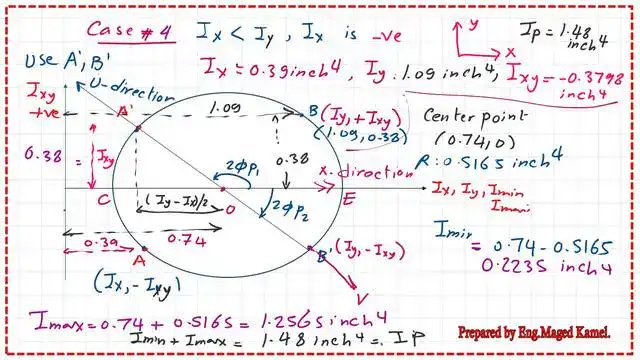 Case # 4 Ix < Iy , Ix is -ve
y
x
Ip = 1.48 inch4
Use A', B'
Ix = 0.39 inch4 , Iy : 1.09 inch4, Ixy = -0.3798 inch4
U-direction
Ixy
+ve
A'
1.09
B (Iy, +Ixy)
(1.09, 0.38)
Center point
(0.74, 0)
R: 0.5165 inch4
0.38 = Ixy
2ΦP1
0.38
X-direction
C
(Iy-Ix)/2
O
2ΦP2
E
Ix, Iy, Imin
Imax
0.74
0.39
A
B' (Iy, -Ixy)
Imin = 0.74 - 0.5165
0.2235 inch4
(Ix, -Ixy)
V
Imax = 0.74 + 0.5165 = 1.2565 inch4
Imin + Imax = 1.48 inch4 = IP
Prepared by Eng.Maged Kamel.